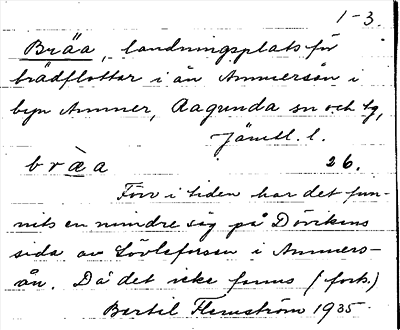 1-3.
Bräa, landningsplats för
brädflottar i ån Ammersån i
byn Ammer, Ragunda sn och tg,
Jämtl. l.
brὰa 26.
Förr i tiden har det fun-
nits en mindre sig på Dövikens
sida av Lövleforsen i Ammers-
ån. Då det icke fanns (forts.)
Bertil Flemström 1935.